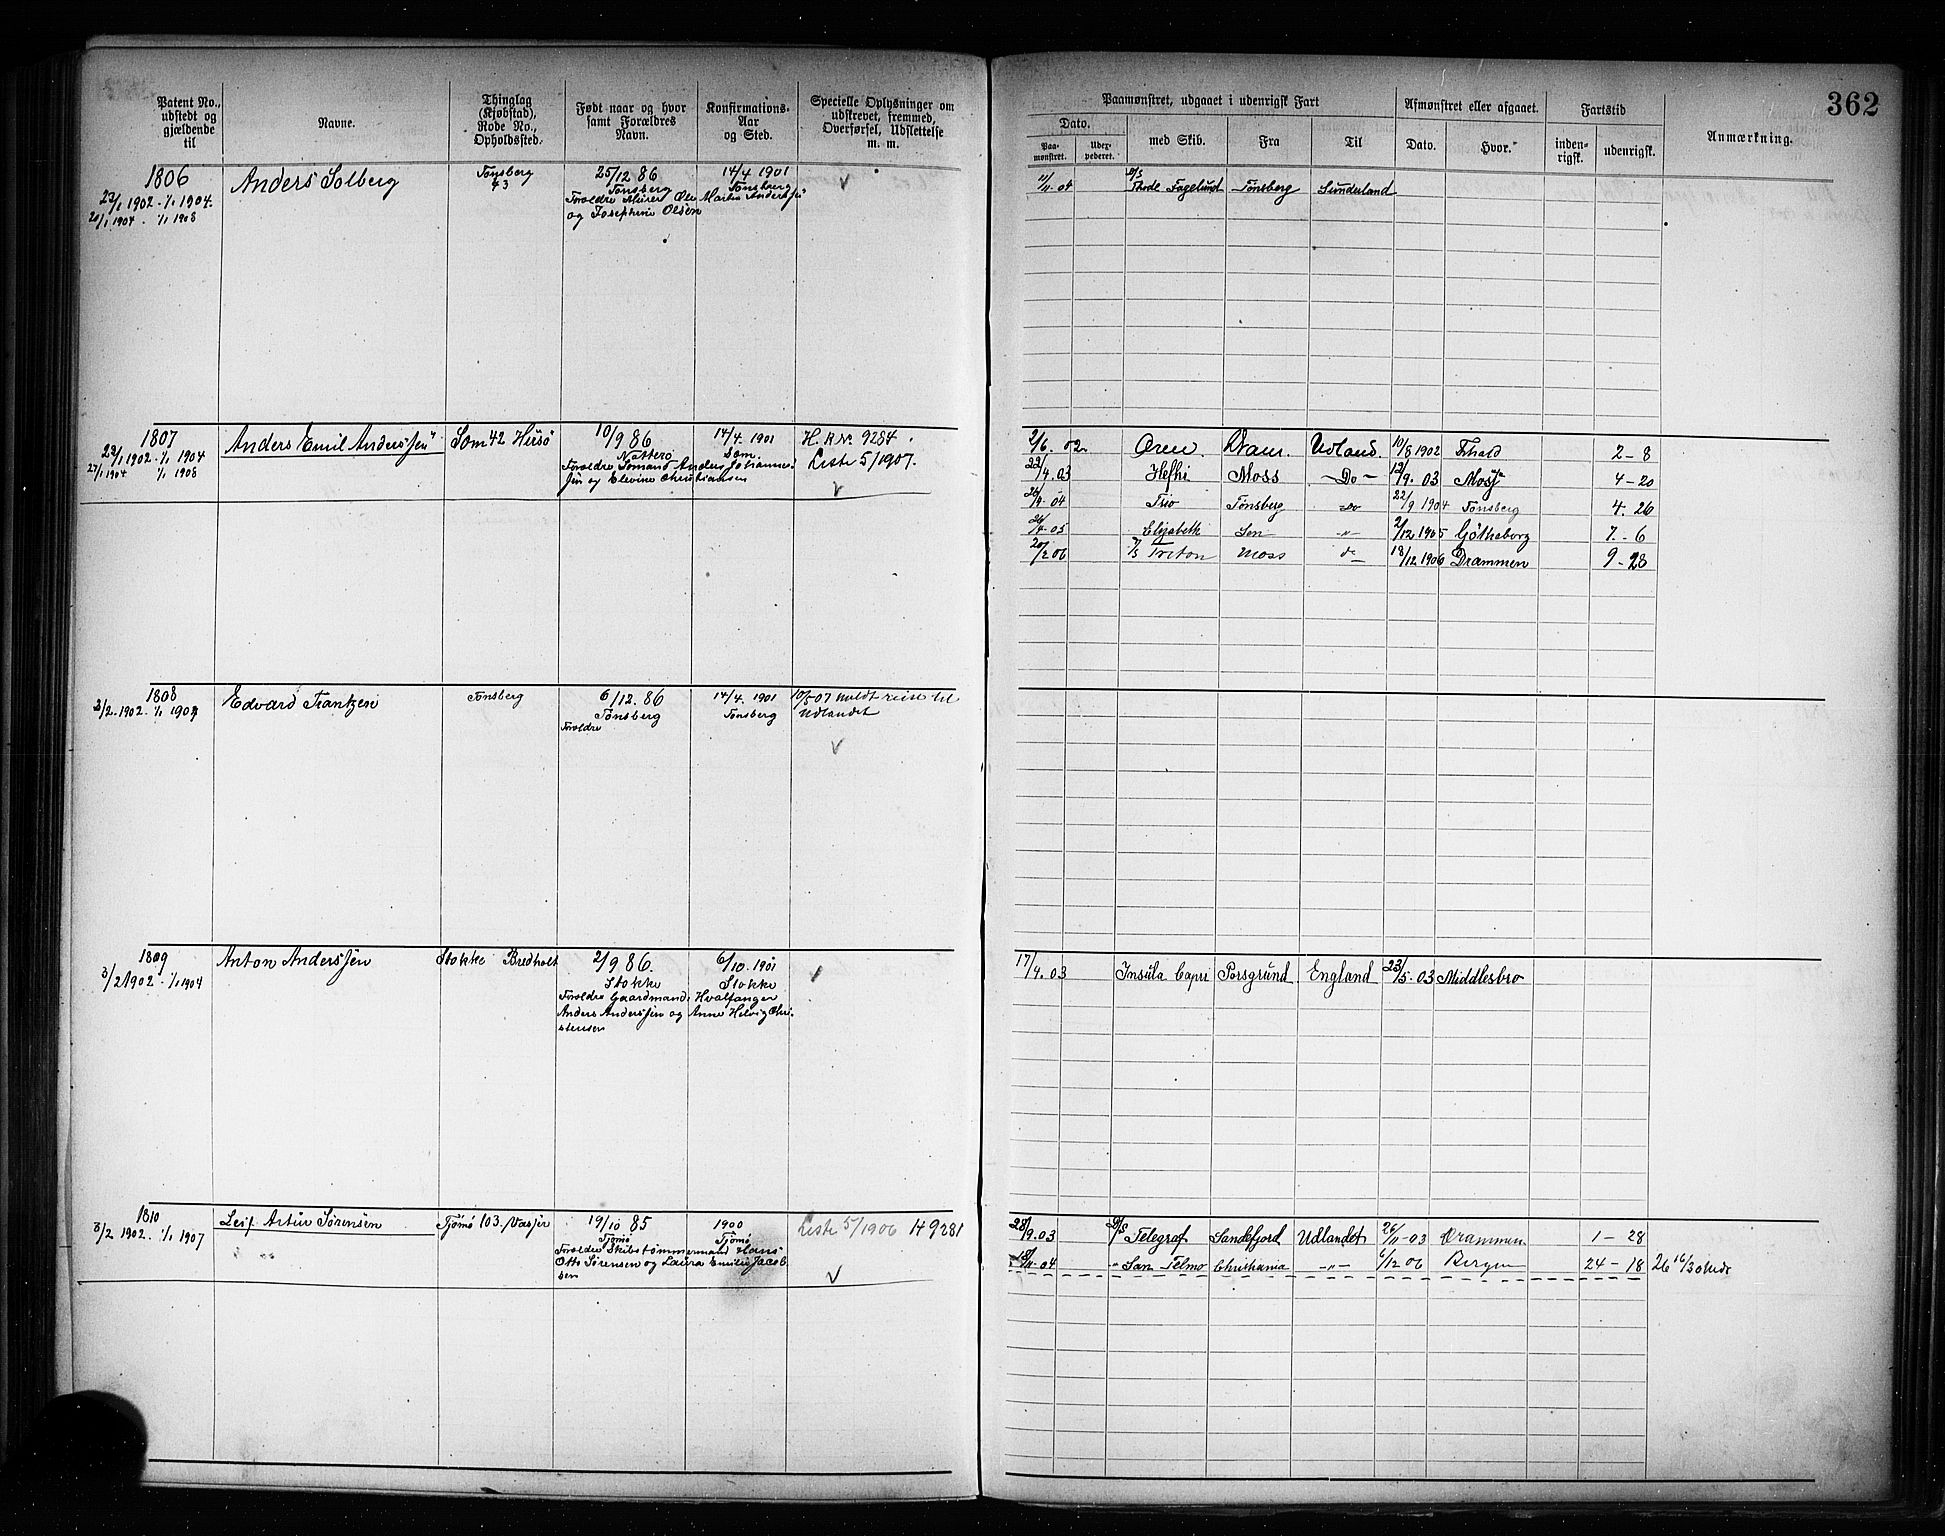 Patent No., udstedt og gjældende til
Navne.
Thinglag (Kjøbstad), Rode No., Opholdssted.
Født naar og hvor samt Forældres Navn.
Konfirmations-Aar og Sted.
Specielle Oplysninger om udskrevet, fremmed, Overførsel, Udslettelse m. m.
Paamønstret, udgaaet i udenrigsk Fart
Afmønstret eller afgaaet.
Fartstid
Anmærkning.
362
Dato.
Paa-mønstret.
Udex-pederet.
med Skib.
Fra
Til
Dato.
Hvor.
inden-rigsk.
udenrigsk.
1806
22/1 1902 - 1/1 1904.
1904 - 1/1 1908
Anders Solberg
Tønsberg
43
25/12 86
Tønsberg
Forældre Murer Ole Martin Andersen
og Josephine Olsen
14/4 1901
Tønsberg
11/11 04
D/S Thode Fagelund
Tønsberg
Sunderland
1807
22/1 1902 - 1/1 1904
27/1 1904 1/1 1908
Anders Emil Andersen
Sem 42 Husø
10/9 86
Nøtterø
Forældre Sømand Anders Johanne-
sen og Elevine Christiansen
14/4. 1901
Sem.
H. R No. 9284.
Liste 5/1907.
2/6. 02 Oren. Dram. Udland 10/8 1902 Fhald 2 - 8
22/4. 03 Hefhi Moss Do 12/9. 03 Moss 4 - 20
04 Trio Tønsberg Do 22/9 1904 Tønsberg 4. 26
05 Elizabeth Sen " 2/12 1905 Gøtheborg 7. - 6
20/2 06 Triton Moss do 18/12 1906 Drammen 9 - 28
1808
3/2. 1902. 1/1 1907
Edvard Frantzen
Tønsberg
6/12. 86
Tønsberg
Forældre
14/4. 1901
Tønsberg
10/5 07 meldt reise til
Udlandet
1809
3/2 1902 - 1/1 1904
Anton Andersen
Stokke Bredholt
2/9 86.
Stokke
Forældre Gaardmand, Hvalfanger
Anders Andersen og Anne Helvig Chri-
stensen
6/10. 1901
Stokke
17/4. 03 Insula Capri Porsgrund England 23/5. 03 Middlesbro
1810
3/2 1902. 1/1 1907
Leif Artur Sørensen
Tjømø 103.
19/10 85
Tjømø
Forældre Skibstømmermand Hans
Otto Sørensen og Laura Emilie Jacob
sen
1900
Tjømø
Liste 5/1906 H 9281
28/9. 03 D/S Telegraf Sandefjord Udlandet 26/11 - 03 Drammen 1 - 28
18/11. 04 " San Telmo Christiania " 6/12 06 Bergen 24 - 18